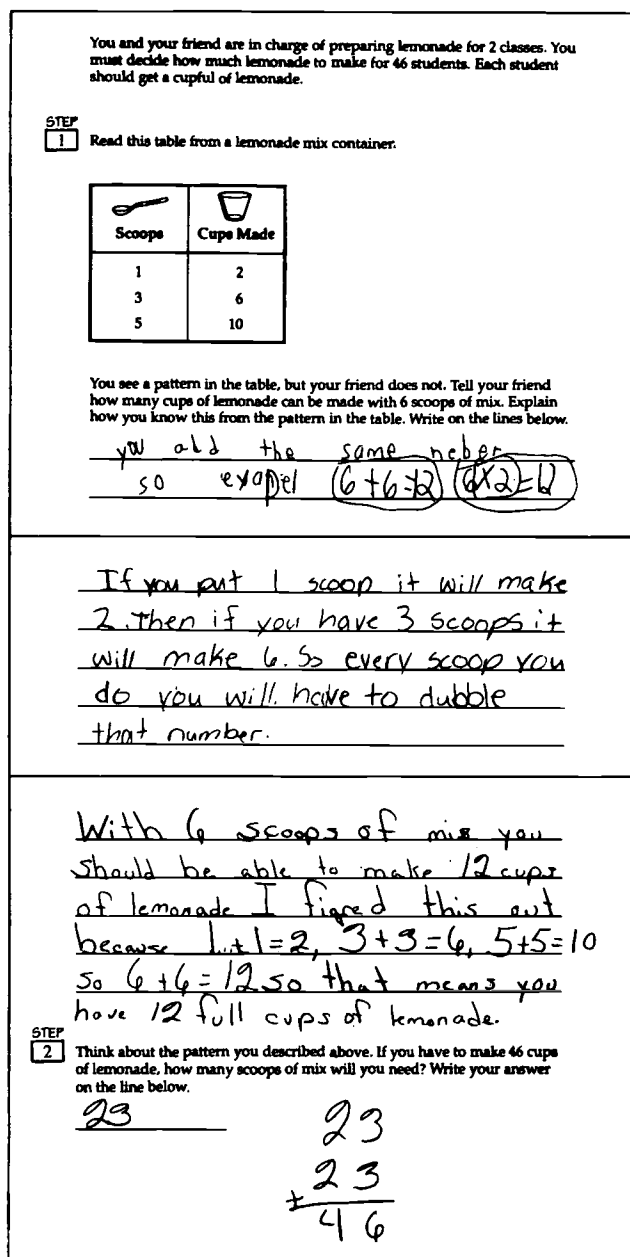 You and your friend are in charge of preparing lemonade for 2 classes. You
must decide how much lemonade to make for 46 students. Each student
should get a cupful of lemonade.
STEP
1 Read this table from a lemonade mix container.
Scoops Cups Made
1 2
3 6
5 10
You see a pattern in the table, but your friend does not. Tell your friend
how many cups of lemonade can be made with 6 scoops of mix. Explain
how you know this from the pattern in the table. Write on the lines below.
you add the same neber
so exapel (6+6=12) (6x2)=12
If you put 1 scoop it will make
2. Then if you have 3 scoops it
will make 6. So every scoop you
do you will have to dubble
that number.
With 6 scoops of mix you
should be able to make 12 cups
of lemonade I figred this out
because 1+1=2, 3+3=6, 5+5=10
so 6+6=12 so that means you
have 12 full cups of lemonade.
STEP
2 Think about the pattern you described above. If you have to make 46 cups
of lemonade, how many scoops of mix will you need? Write your answer
on the line below.
23
23
+ 23
46